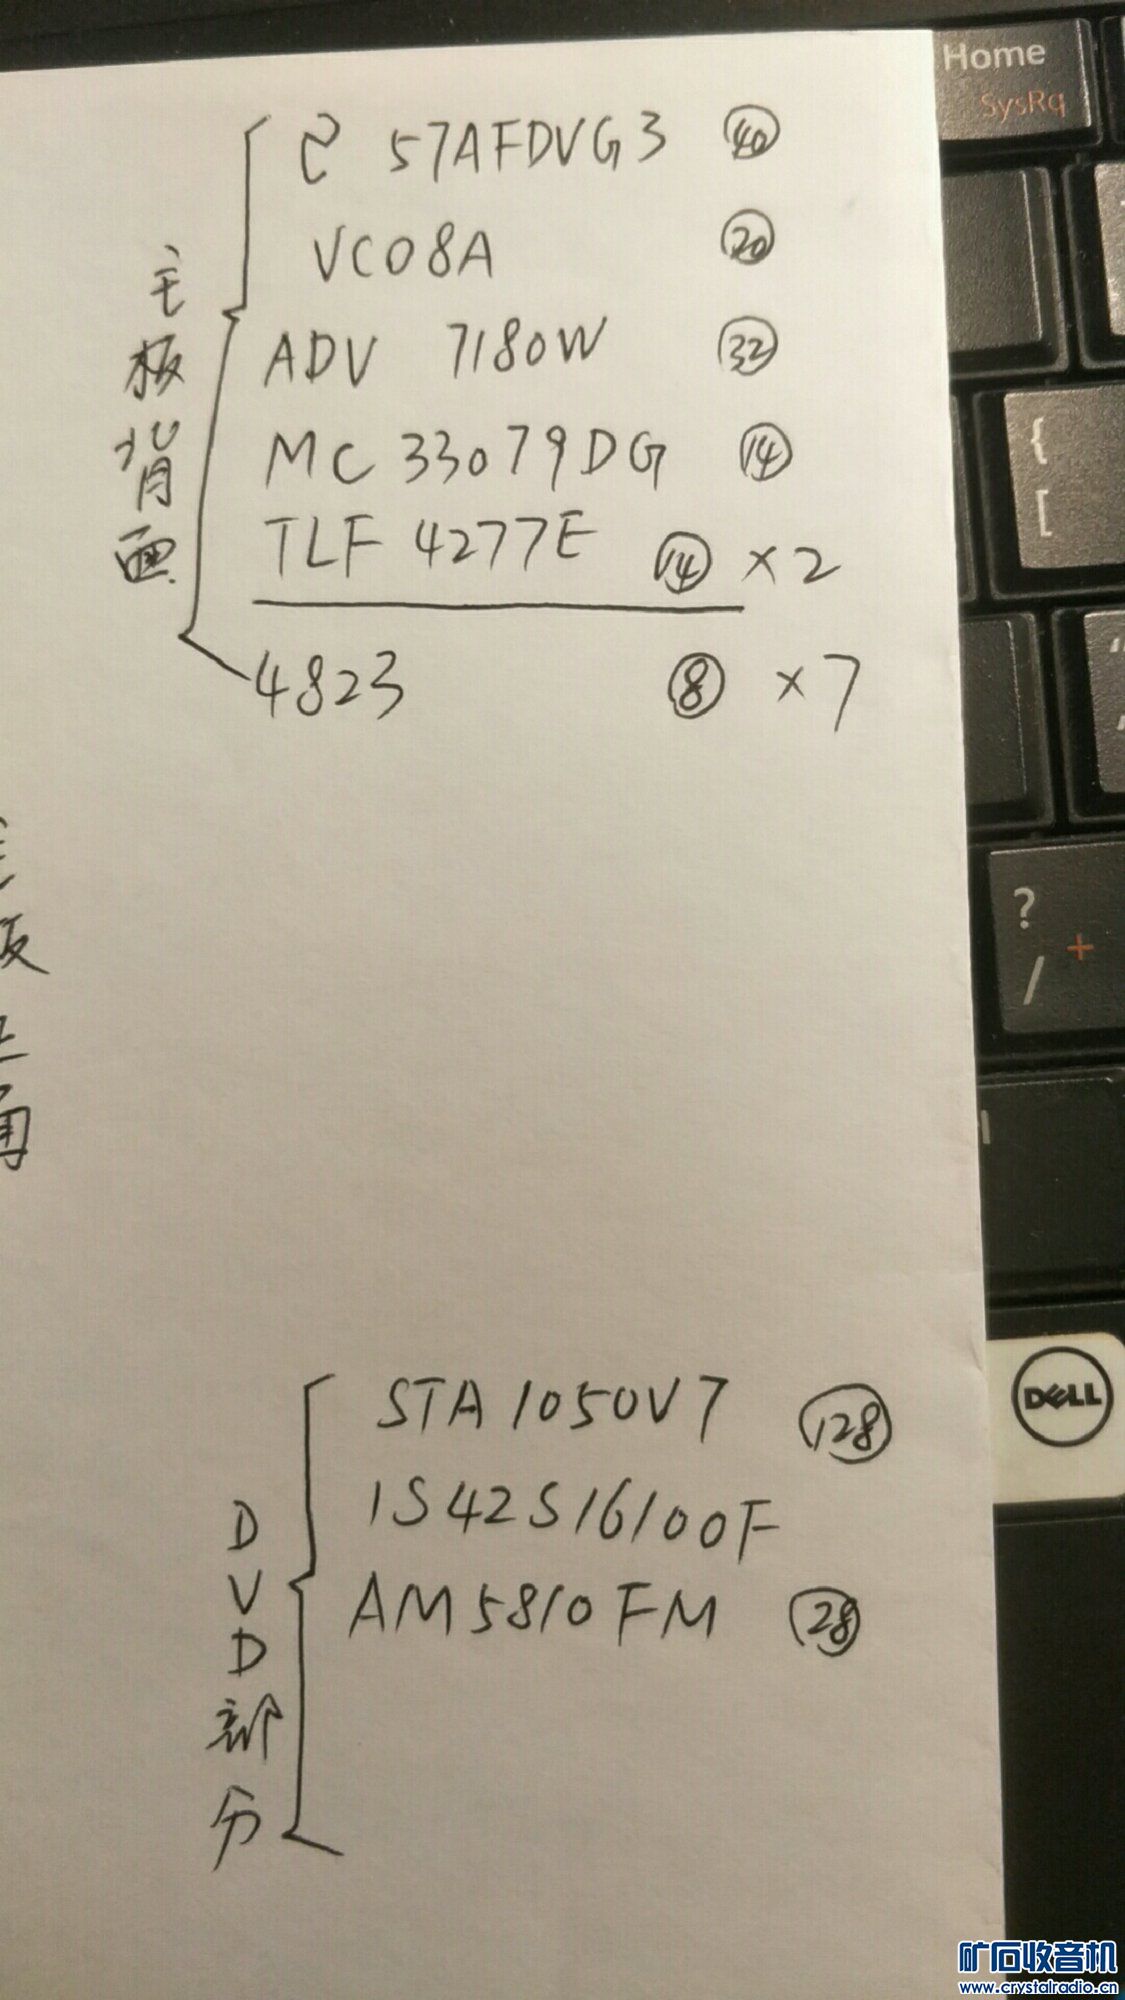 主板背面
57AFDVG3 ㊵
VC08A ⑳
ADV 7180W ㉜
MC 33079DG ⑭
TLF 4277E ⑭ ×2
4823 ⑧ ×7
DVD部分
STA1050V7 (128)
IS42S16100F
AM5810FM ㉘
Home
SysRq
{
[
?
/
+
DELL
矿石收音机
www.crystalradio.cn